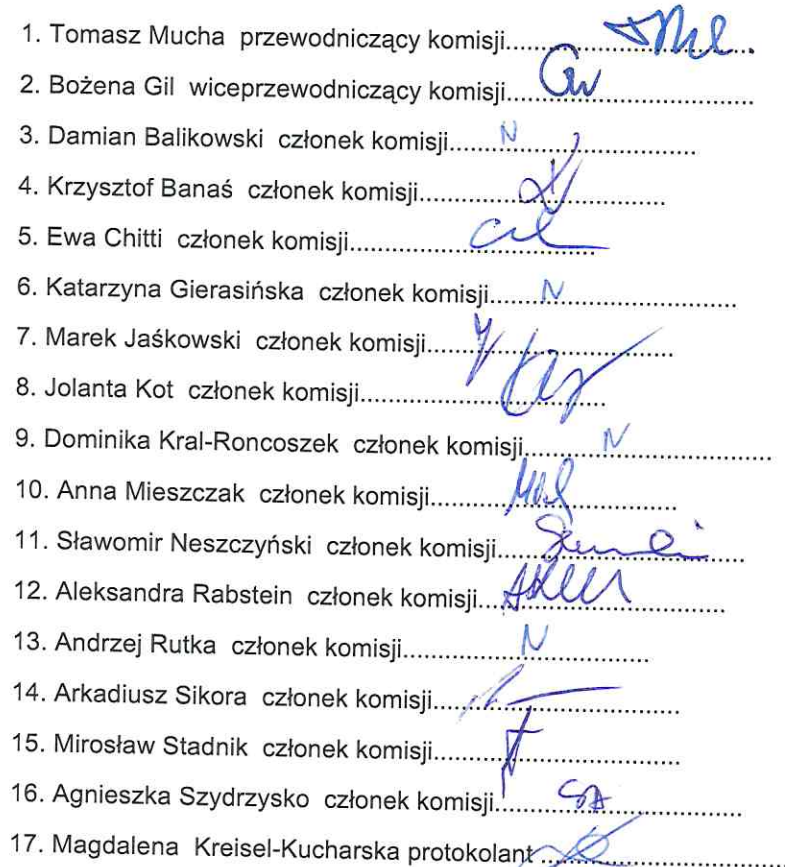 1. Tomasz Mucha przewodniczący komisji
2. Bożena Gil wiceprzewodniczący komisji
3. Damian Balikowski członek komisji N
4. Krzysztof Banaś członek komisji
5. Ewa Chitti członek komisji
6. Katarzyna Gierasińska członek komisji N
7. Marek Jaśkowski członek komisji
8. Jolanta Kot członek komisji
9. Dominika Kral-Roncoszek członek komisji N
10. Anna Mieszczak członek komisji
11. Sławomir Neszczyński członek komisji
12. Aleksandra Rabstein członek komisji
13. Andrzej Rutka członek komisji N
14. Arkadiusz Sikora członek komisji
15. Mirosław Stadnik członek komisji
16. Agnieszka Szydrzysko członek komisji
17. Magdalena Kreisel-Kucharska protokolant